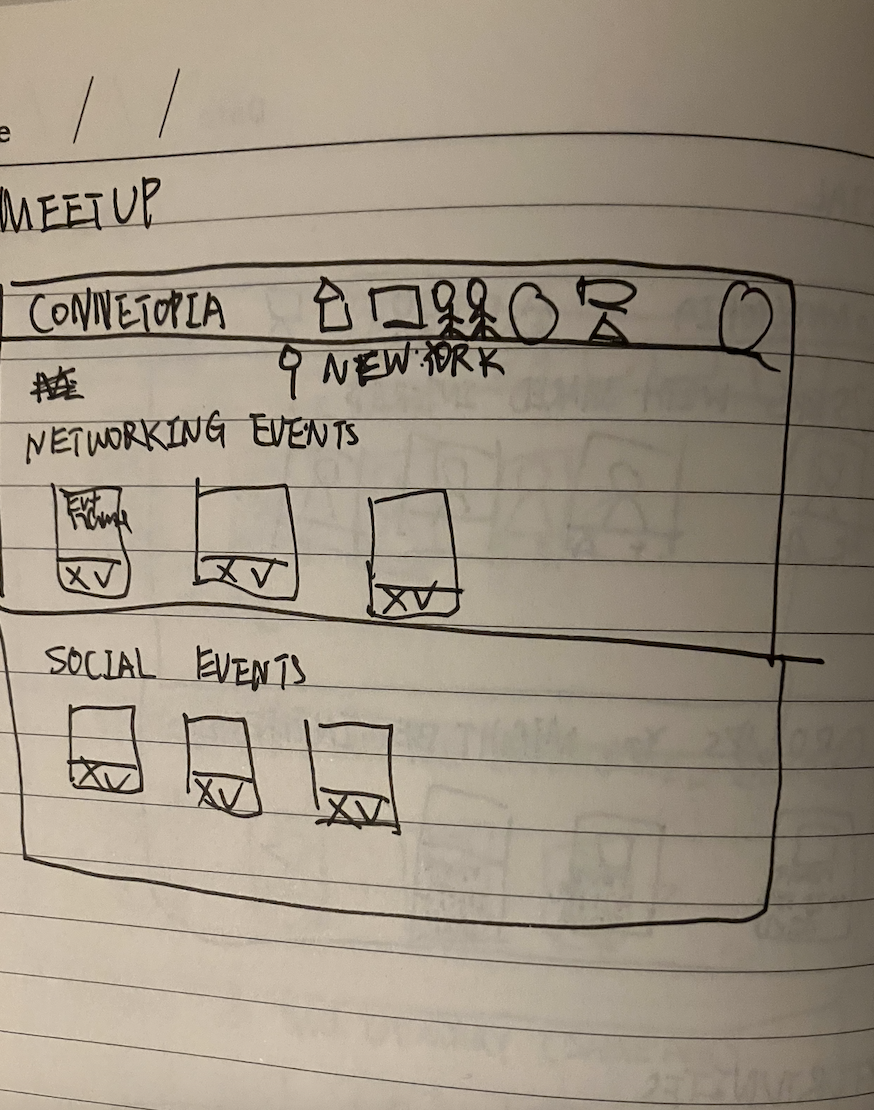 e / /
MEETUP
CONNETOPIA
NEW YORK
NETWORKING EVENTS
Evt
Name
X V X V X V
SOCIAL EVENTS
X V X V X V